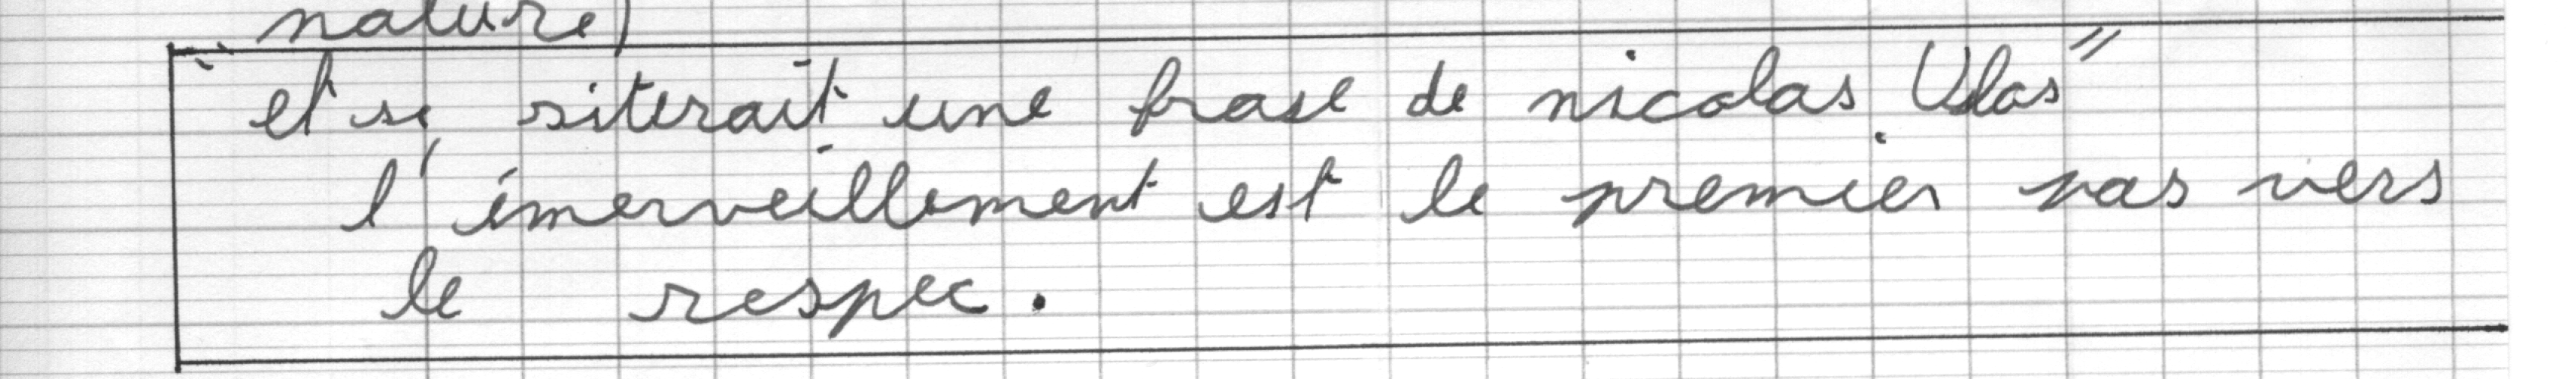 nature)
et si, siterait une frase de nicolas Ulas"
l'émerveillement est le premier pas vers
le respec.